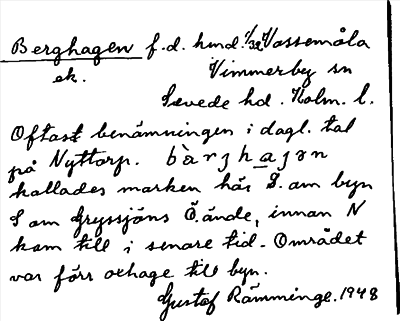 Berghagen f.d. hmd. 1/32 Vassemåla
ek. Vimmerby sn
Sevede hd. Kalm. l.
Oftast benämningen i dagl. tal
på Nyttorp. bàrʒhaʒən
kallades marken här S. om byn
S om Gryssjöns Ö. ände, innan N
kom till i senare tid. Området
var förr oxhage till byn.
Gustaf Rämminge. 1948